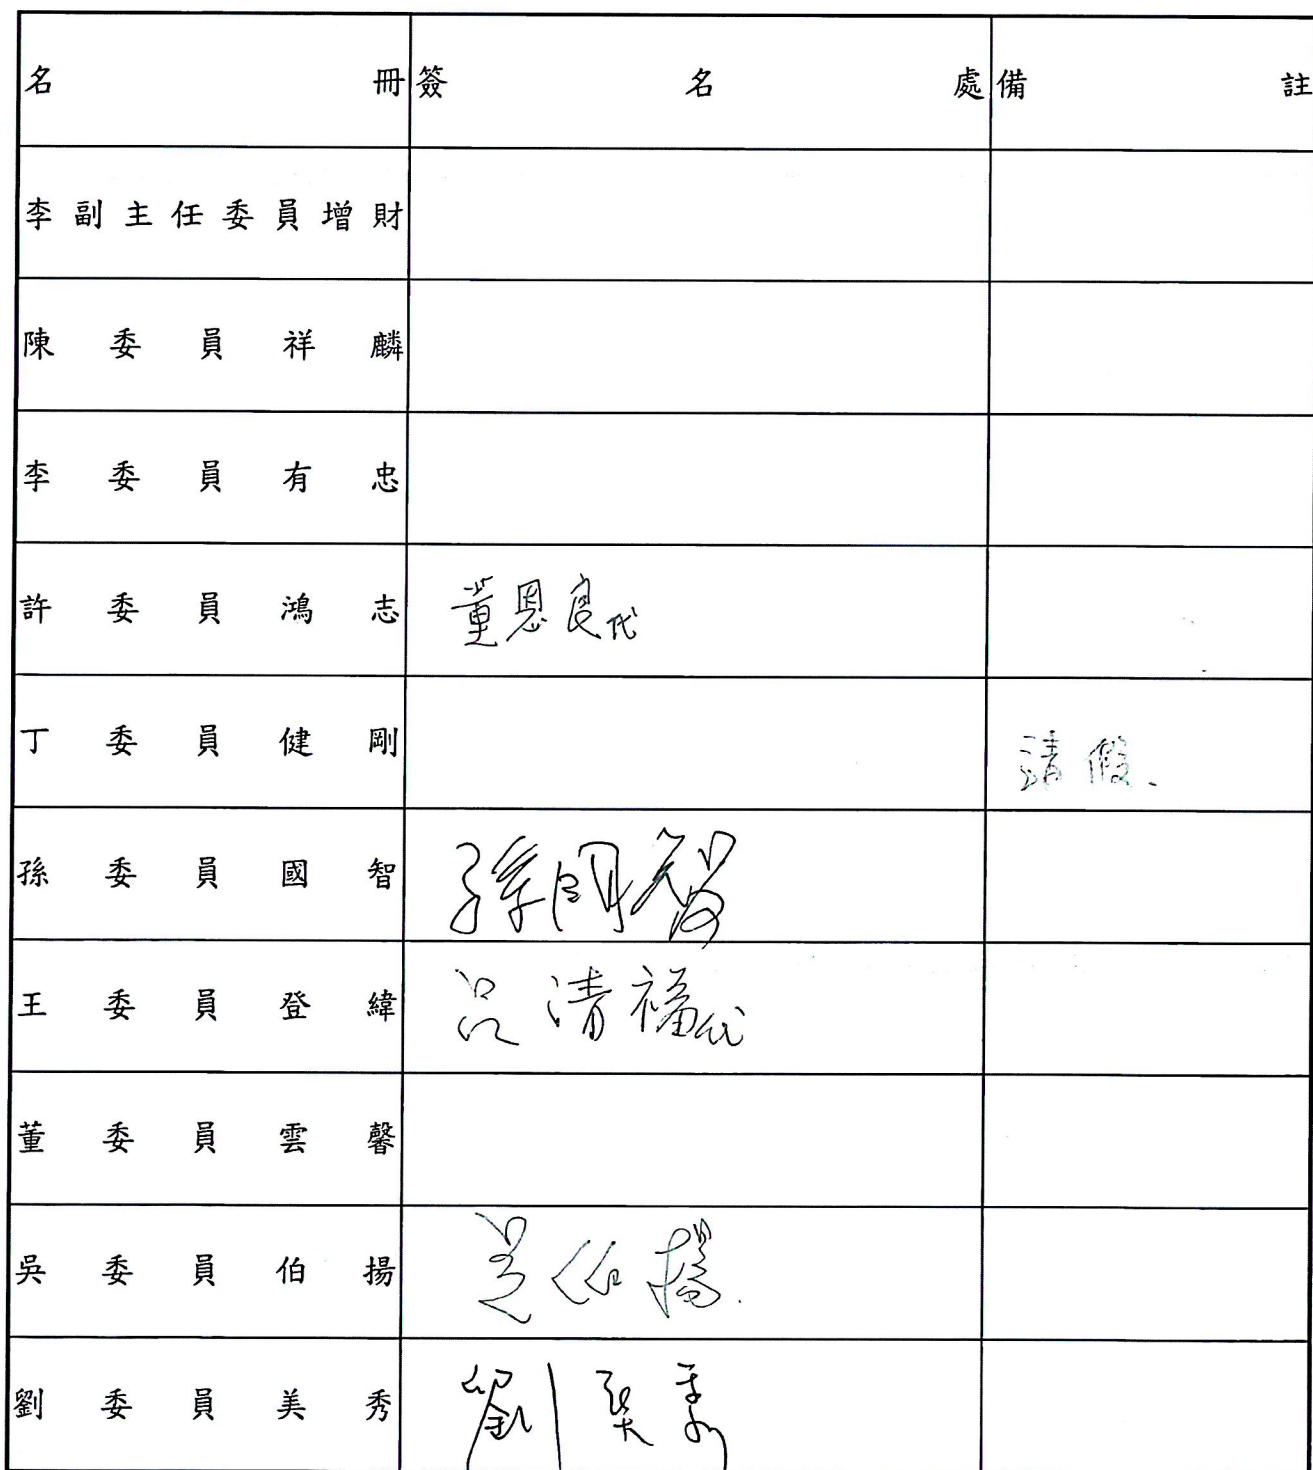 名冊 簽名處 備註
李副主任委員增財
陳委員祥麟
李委員有忠
許委員鴻志 董恩良代
丁委員健剛 請假、
孫委員國智 孫国智
王委員登緯 呂清福代
董委員雲馨
吳委員伯揚 吳伯揚.
劉委員美秀 劉美秀